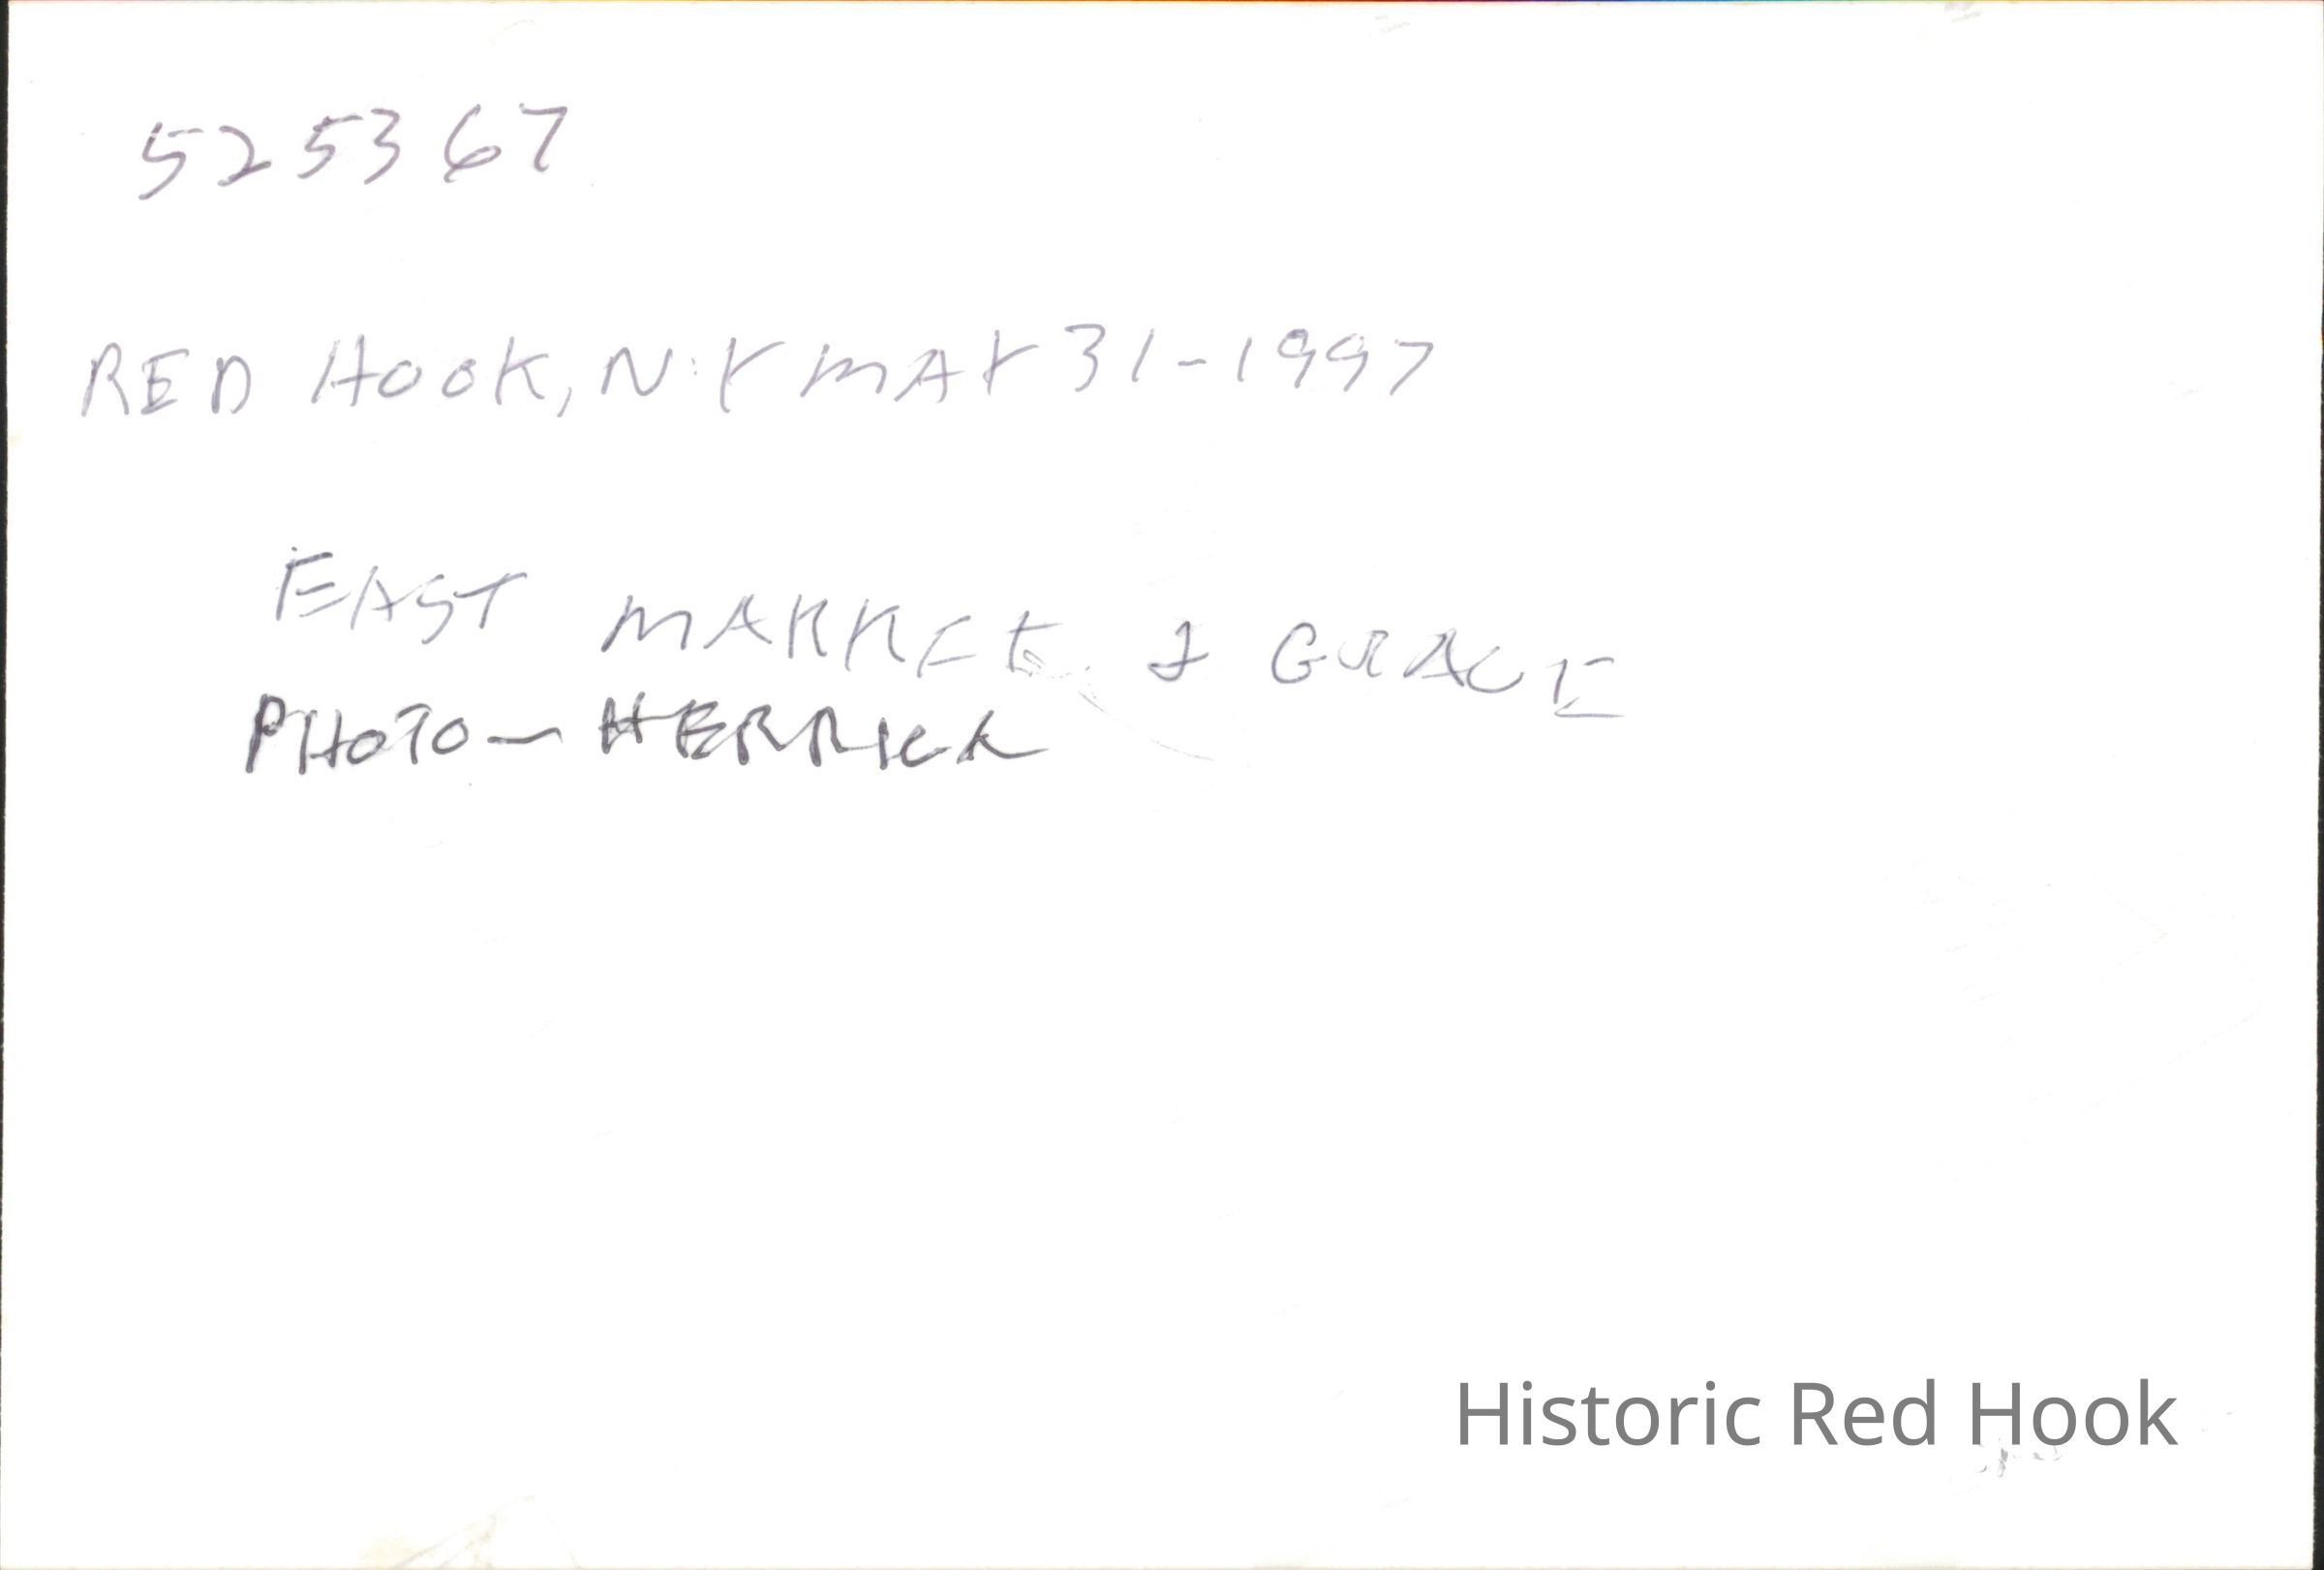 525367
RED HOOK, N.Y MAY 31-1997
EAST MARKET & GRACE
PHOTO - HERRICK
Historic Red Hook